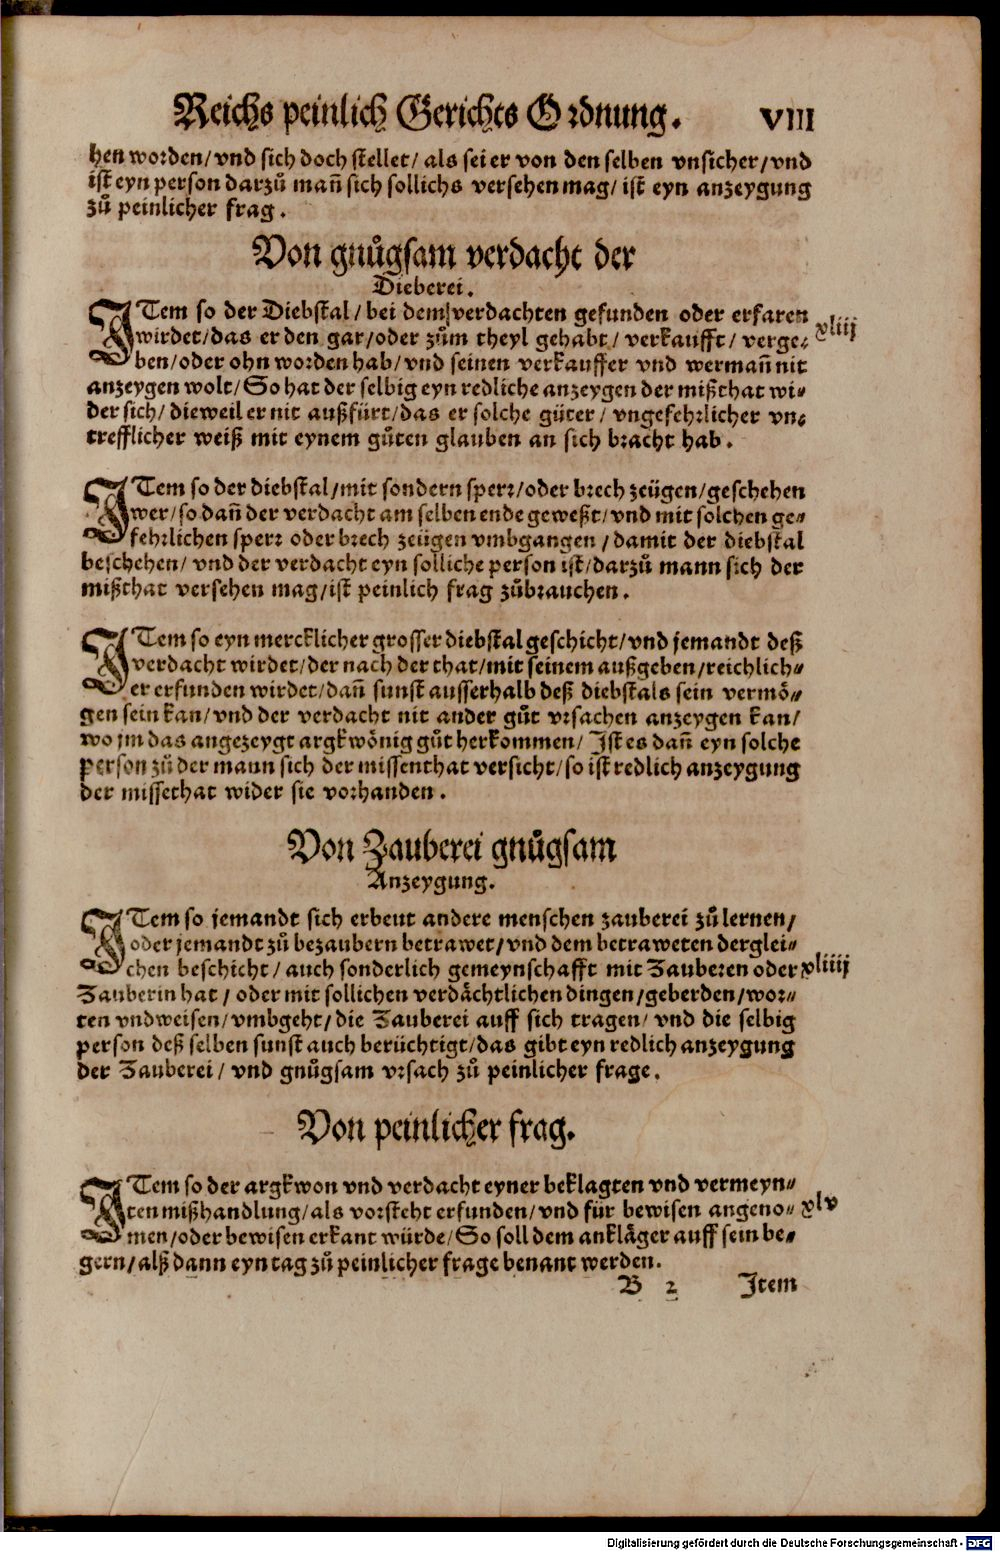 Reichs peinlich Gerichts Ordnung. VIII
hen worden/ vnd sich doch stellet/ als sei er von den selben vnsicher/ vnd
ist eyn person darzů mañ sich sollichs versehen mag/ ist eyn anzeygung
zů peinlicher frag.
Von gnůgsam verdacht der
Dieberei.
ITem so der Diebstal/ bei dem verdachten gefunden oder erfaren
wirdet/ das er den gar/ oder zům theyl gehabt/ verkaufft/ verge⸗ xliij
ben/ oder ohn worden hab/ vnd seinen verkauffer vnd wermañ nit
anzeygen wolt/ So hat der selbig eyn redliche anzeygen der mißthat wi⸗
der sich/ dieweil er nit außfürt/ das er solche güter/ vngefehrlicher vn⸗
trefflicher weiß mit eynem gůten glauben an sich bracht hab.
ITem so der diebstal/ mit sondern sperr/ oder brech zeügen/ geschehen
wer/ so dañ der verdacht am selben ende geweßt/ vnd mit solchen ge⸗
fehrlichen sperr oder brech zeügen vmbgangen/ damit der diebstal
beschehen/ vnd der verdacht eyn solliche person ist/ darzů mann sich der
mißthat versehen mag/ ist peinlich frag zůbrauchen.
ITem so eyn mercklicher grosser diebstal geschicht/ vnd jemandt deß
verdacht wirdet/ der nach der that/ mit seinem außgeben/ reichlich⸗
er erfunden wirdet/ dañ sunst ausserhalb deß diebstals sein vermö⸗
gen sein kan/ vnd der verdacht nit ander gůt vrsachen anzeygen kan/
wo jm das angezeygt argkwönig gůt herkommen/ Ist es dañ eyn solche
person zů der mann sich der missenthat versicht/ so ist redlich anzeygung
der missethat wider sie vorhanden.
Von Zauberei gnůgsam
Anzeygung.
ITem so jemandt sich erbeut andere menschen zauberei zů lernen/
oder jemandt zů bezaubern betrawet/ vnd dem betraweten derglei⸗
chen beschicht/ auch sonderlich gemeynschafft mit Zauberen oder xliiij
Zauberin hat/ oder mit sollichen verdächtlichen dingen/ geberden/ wor⸗
ten vnd weisen/ vmbgeht/ die Zauberei auff sich tragen/ vnd die selbig
person deß selben sunst auch berüchtigt/ das gibt eyn redlich anzeygung
der Zauberei/ vnd gnůgsam vrsach zů peinlicher frage.
Von peinlicher frag.
ITem so der argkwon vnd verdacht eyner beklagten vnd vermeyn⸗
ten mißhandlung/ als vorsteht erfunden/ vnd für bewisen angeno⸗ xlv
men/ oder bewisen erkant würde/ So soll dem ankläger auff sein be⸗
gern/ alß dann eyn tag zů peinlicher frage benant werden.
B 2 Item
Digitalisierung gefördert durch die Deutsche Forschungsgemeinschaft - DFG